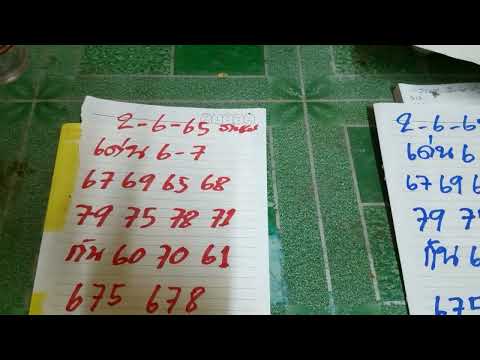 2-6-65
เด่น 6-7
67 69 65 68
79 75 78 71
กัน 60 70 61
675 678
2-6-6
เด่น 6
67 69 6
79 7
กัน 6
675